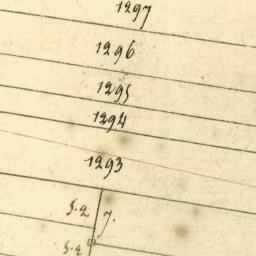 1297
1296
1295
1294
1293